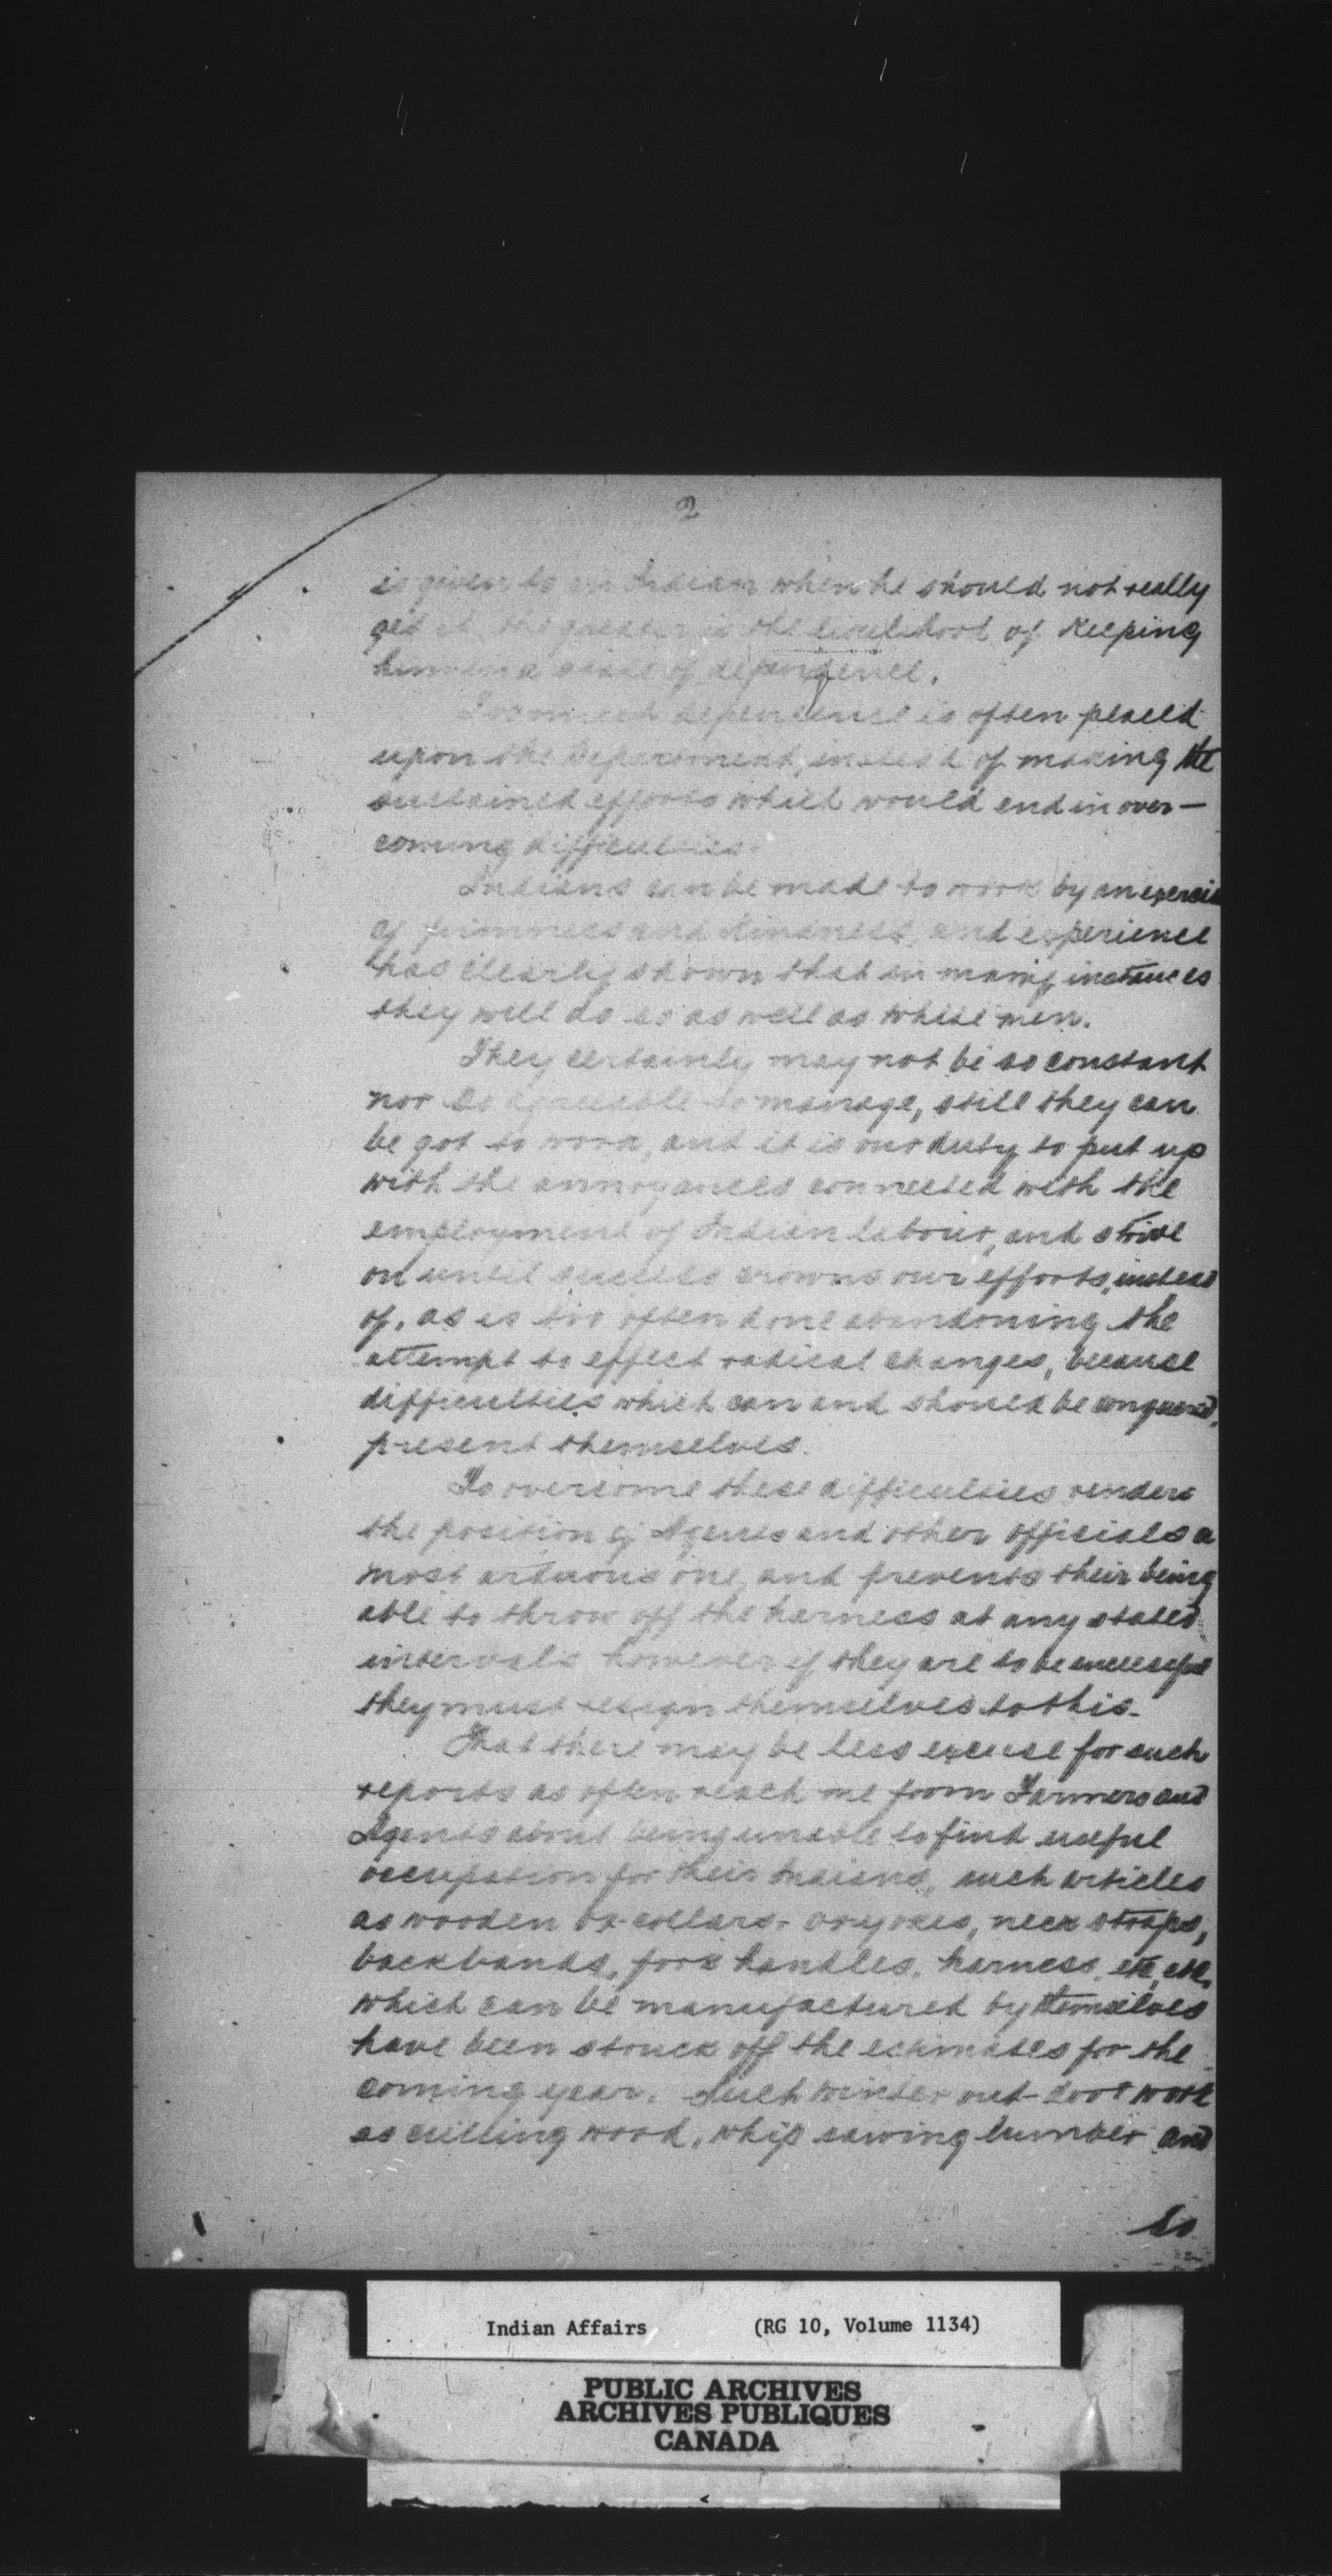 2
is given to an Indian when he should not really
get it the greater is the likelihood of keeping
him in a state of dependence.
Too much dependence is often placed
upon the Department, instead of making the
sustained efforts which would end in over-
coming difficulties.
Indians can be made to work by an exercise
of firmness and kindness, and experience
has clearly shown that in many instances
they will do so as well as white men.
They certainly may not be so constant
nor so agreeable to manage, still they can
be got to work, and it is our duty to put up
with the annoyances connected with the
employment of Indian labour, and strive
on until success crowns our efforts, instead
of, as is too often done abandoning the
attempt to effect radical changes, because
difficulties which can and should be conquered,
present themselves.
To overcome these difficulties renders
the position of Agents and other officials a
most arduous one, and prevents their being
able to throw off the harness at any stated
intervals however if they are to be successful
they must resign themselves to this.
That there may be less excuse for such
reports as often reach me from Farmers and
Agents about being unable to find useful
occupation for their Indians, such articles
as wooden ox-collars, ox yokes, neck straps,
backbands, fork handles, harness, etc, etc,
which can be manufactured by themselves
have been struck off the estimates for the
coming year. Such winter out-door work
as cutting wood, whip sawing lumber and
so
Indian Affairs (RG 10, Volume 1134)
PUBLIC ARCHIVES
ARCHIVES PUBLIQUES
CANADA